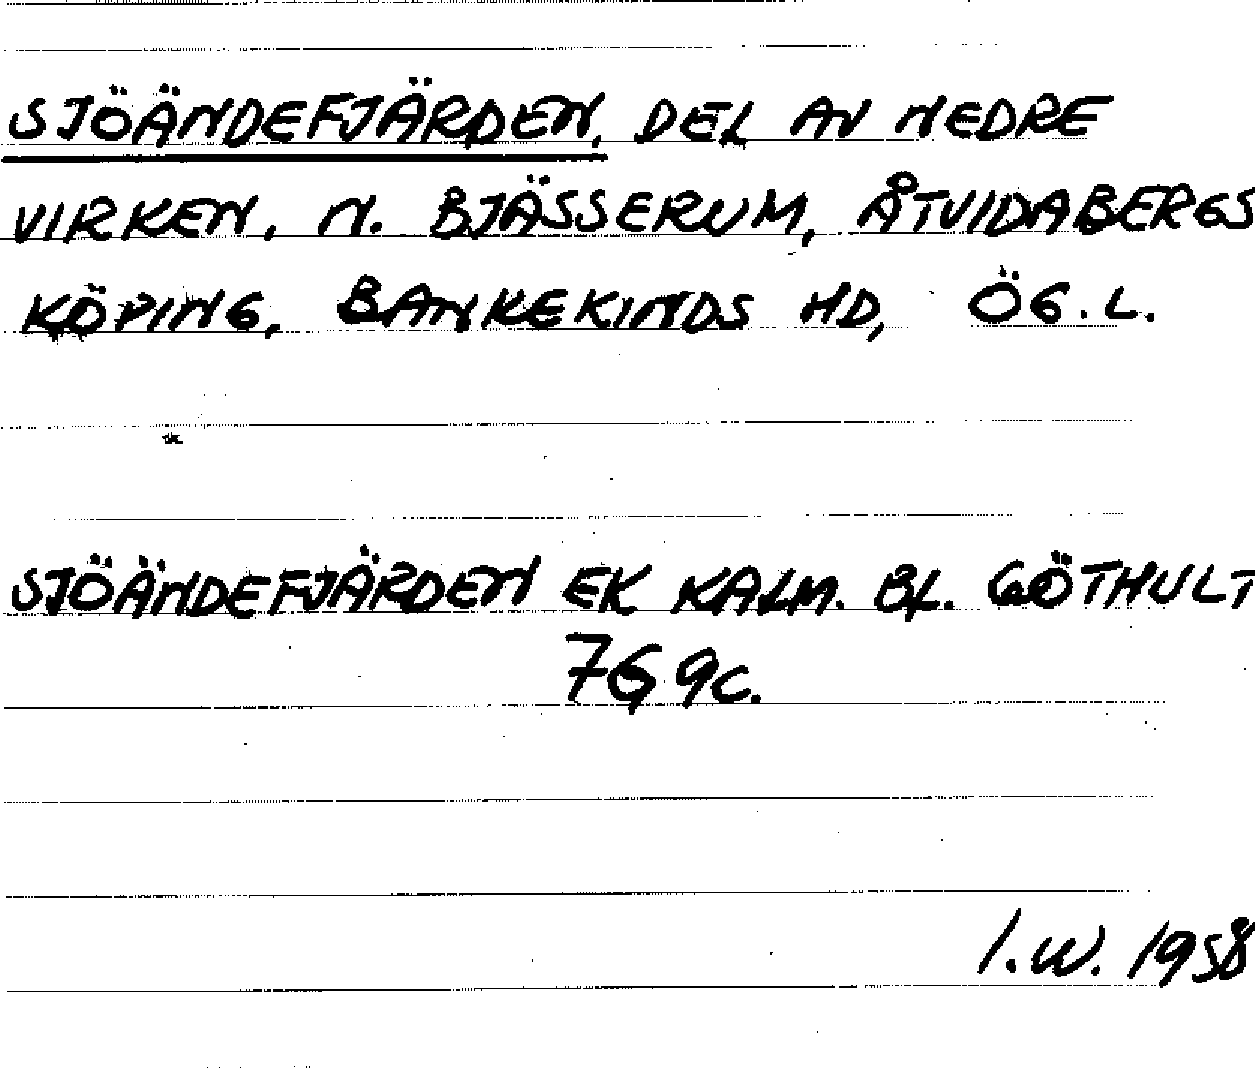 SJÖÄNDEFJÄRDEN, DEL AV NEDRE
VIRKEN, N. BJÄSSERUM, ÅTVIDABERGS
KÖPING, BANKEKINDS HD, ÖG.L.
SJÖÄNDEFJÄRDEN EK KALM. BL. GÖTHULT
7G 9c.
I.W. 1958